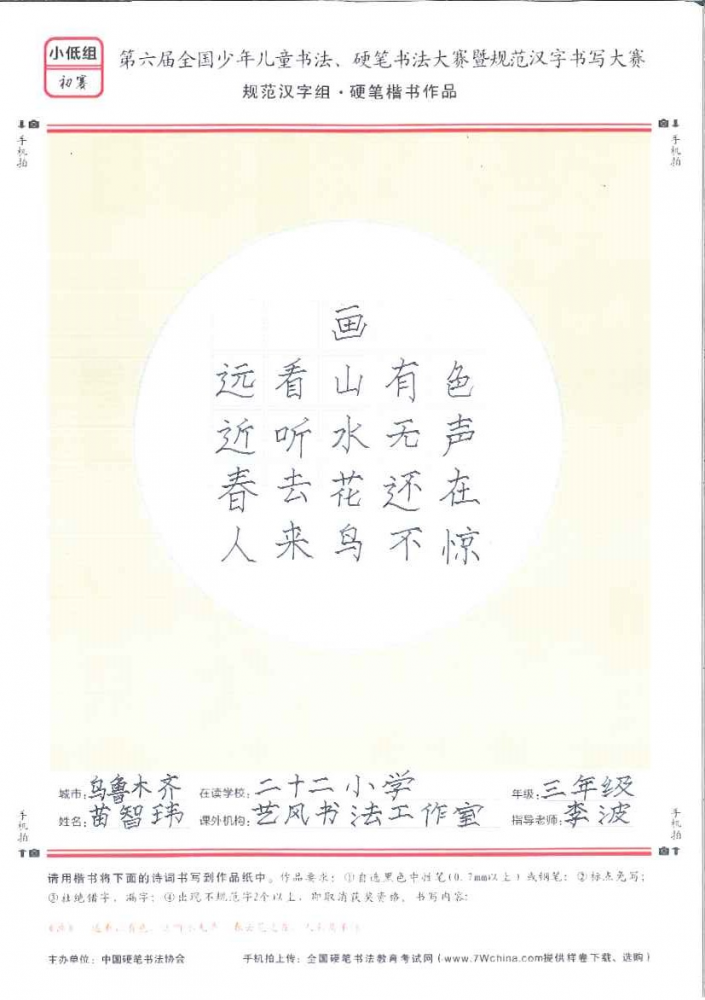 小低组
初赛
第六届全国少年儿童书法、硬笔书法大赛暨规范汉字书写大赛
规范汉字组·硬笔楷书作品
手机拍
手机拍
画
远看山有色
近听水无声
春去花还在
人来鸟不惊
城市:乌鲁木齐 在读学校:二十二小学 年级:三年级
姓名:苗智玮 课外机构:艺风书法工作室 指导老师:李波
手机拍
手机拍
请用楷书将下面的诗词书写到作品纸中。作品要求:①自选黑色中性笔(0.7mm以上)或钢笔;②标点免写;
③杜绝错字、漏字;④出现不规范字2个以上,即取消获奖资格。书写内容:
主办单位:中国硬笔书法协会 手机拍上传:全国硬笔书法教育考试网(www.7Wchina.com提供样卷下载、选购)